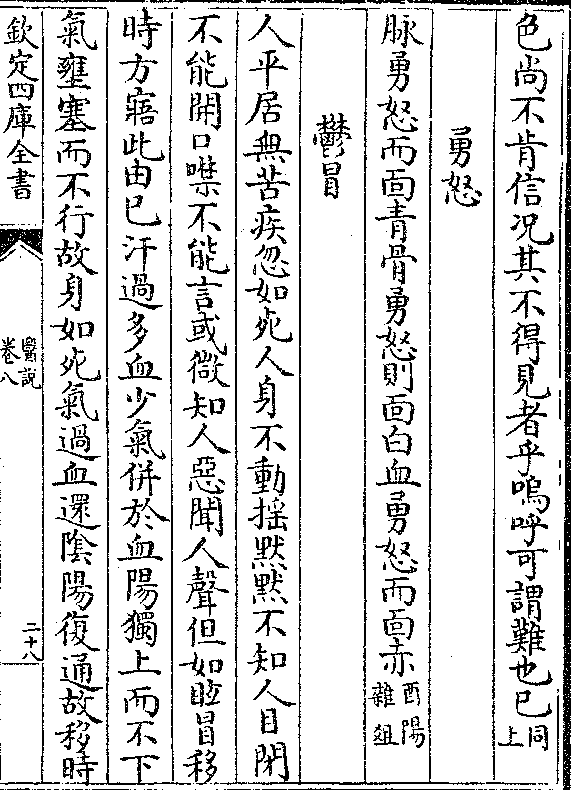 色尚不肯信况其不得見者乎嗚呼可謂難也已同上
勇怒
脉勇怒而面青骨勇怒則面白血勇怒而面赤酉陽雜俎
鬱冒
人平居無苦疾忽如死人身不動揺黙黙不知人目閉
不能開口噤不能言或微知人惡聞人聲但如眩冒移
時方寤此由已汗過多血少氣併於血陽獨上而不下
氣壅塞而不行故身如死氣過血還陰陽復通故移時
欽定四庫全書
醫說
卷八
二十八